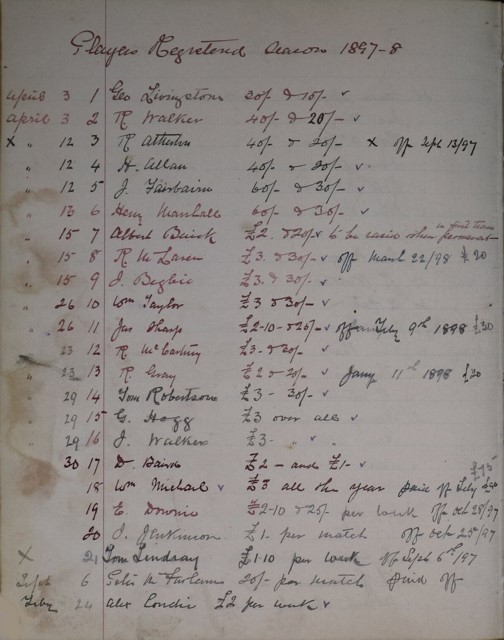 Players Registered season 1897-8
April 3 1 Geo Livingstone 30/- & 10/- ✓
April 3 2 R Walker 40/- & 20/- ✓
x " 12 3 R Atherton 40/- & 20/- x off Sept 13/97
" 12 4 H. Allan 40/- & 20/- ✓
" 12 5 J. Fairbairn 60/- & 30/- ✓
" 13 6 Henry Marshall 60/- & 30/- ✓
" 15 7 Albert Buick £2. & 20/- ✓ to be when in first team permanent
" 15 8 R McLaren £3. & 30/- ✓ off March 22/98 £20
" 15 9 J. Begbie £3. & 30/- ✓
" 26 10 Wm Taylor £3 & 30/- ✓
" 26 11 Jas Sharp £2-10- & 25/- ✓ off Feby 9th 1898 £30
" 23 12 R McCartney £3- & 30/- ✓
" 23 13 R Gray £2 & 20/- ✓ Jany 11th 1898 £20
" 29 14 Tom Robertson £3 - 30/- ✓
" 29 15 G. Hogg £3 over all ✓
" 29 16 J. Walker £3- " ✓ "
30 17 D. Baird £2 - and £1- ✓ £15
18 Wm Michael ✓ £3 all the year Paid off Feby £50
19 E. Downie £2-10 & 25/- per week off Oct 28/97
20 J. Jenkinson £1- per match off Oct 25th/97
x 21 Tom Lindsay £1-10 per week off Sept 6th/97
Sept 6 Peter McFarlane 20/- per match Paid off
Feby 24 Alex Condie £2 per week ✓